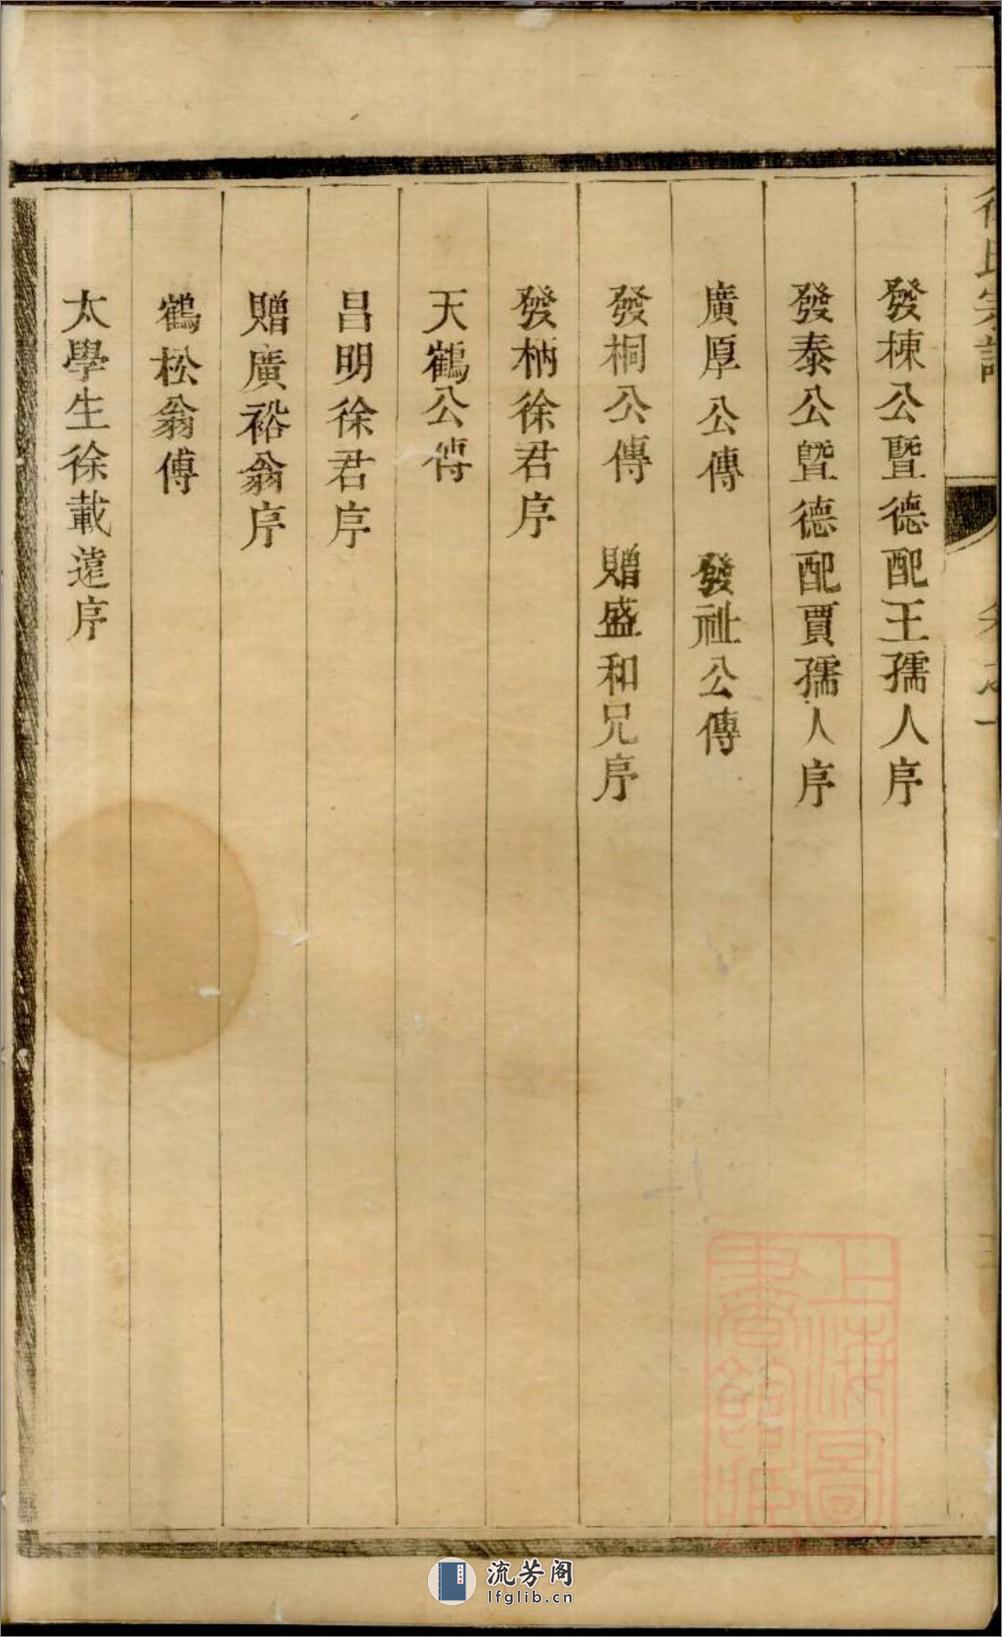 徐氏宗譜
卷之一
發棟公暨德配王孺人序
發泰公暨德配賈孺人序
廣厚公傳　發祉公傳
發桐公傳　贈盛和兄序
發柄徐君序
天鶴公傳
昌明徐君序
贈廣裕翁序
鶴松翁傳
太學生徐載遠序
上海圖書館藏
流芳阁
lfglib.cn